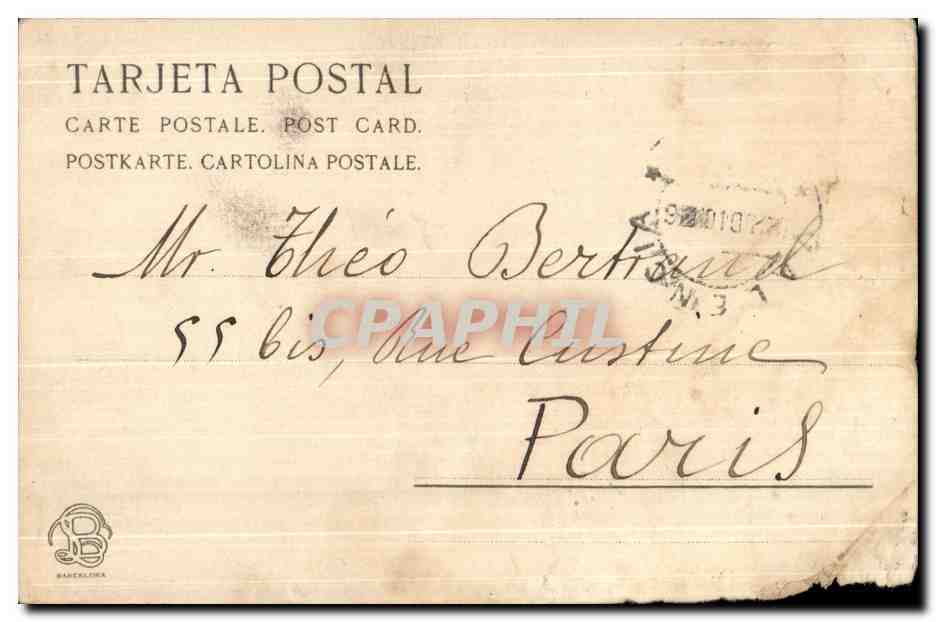 TARJETA POSTAL
CARTE POSTALE. POST CARD.
POSTKARTE. CARTOLINA POSTALE.
Mr. Théo Bertrand
55 bis, Rue Custine
Paris
CPAPHIL
BARCELONA